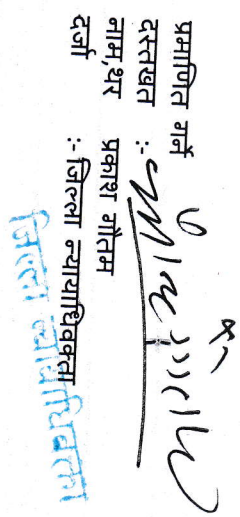 प्रमाणित गर्ने
दस्तखत :-
नाम,थर प्रकाश गौतम
दर्जा :- जिल्ला न्यायाधिवक्ता
जिल्ला न्यायाधिवक्ता